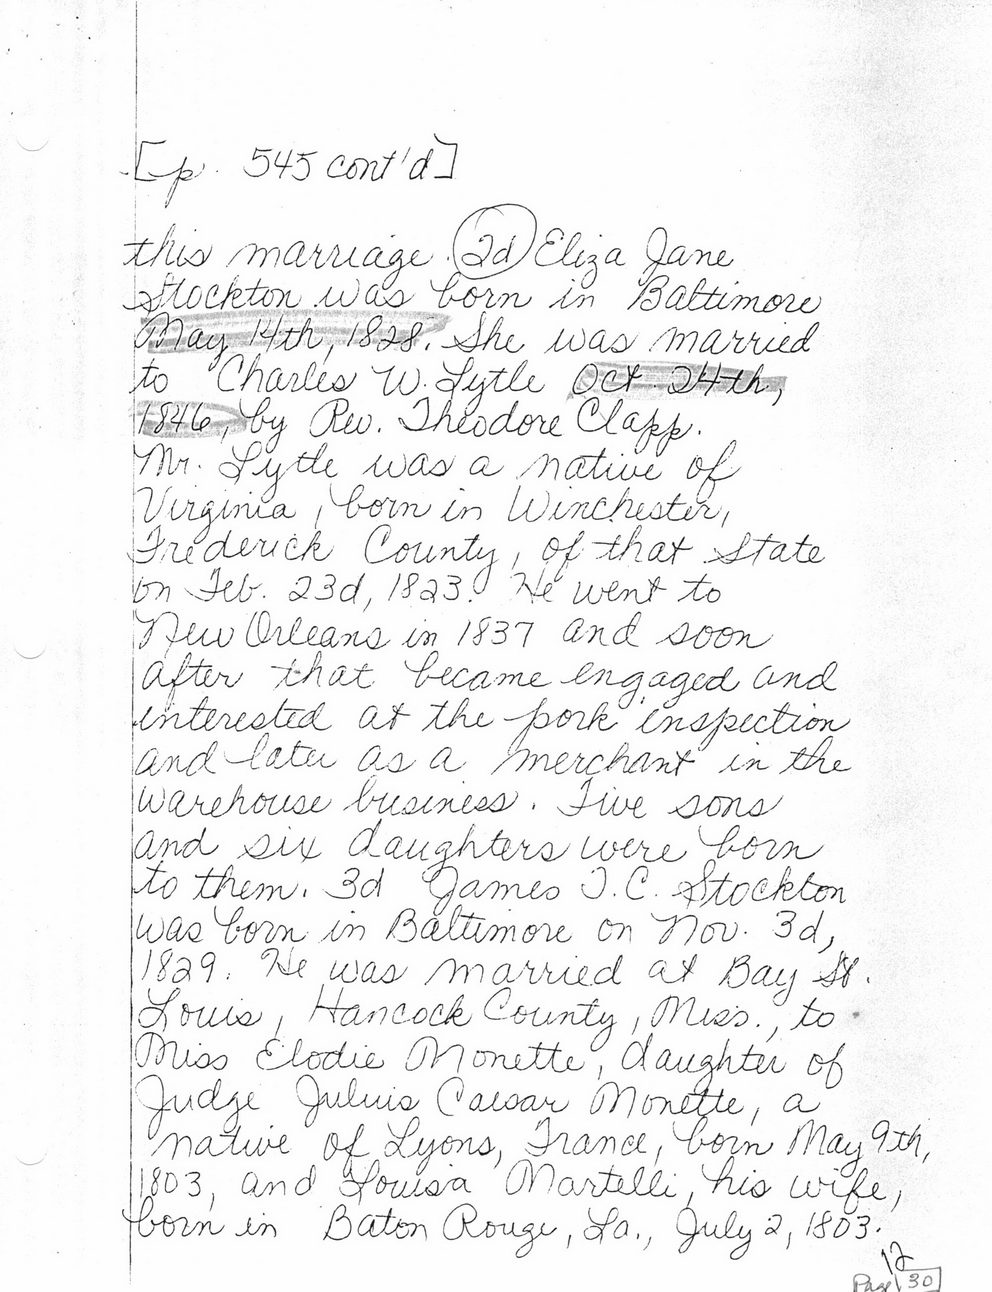 [p. 545 cont'd]
this marriage. 2d Eliza Jane
Stockton was born in Baltimore
May 14th, 1828. She was married
to Charles W. Lytle Oct. 24th,
1846, by Rev. Theodore Clapp.
Mr. Lytle was a native of
Virginia, born in Winchester,
Frederick County, of that State
on Feb. 23d, 1823. He went to
New Orleans in 1837 and soon
after that became engaged and
interested at the pork inspection
and later as a merchant in the
warehouse business. Five sons
and six daughters were born
to them. 3d James T.C. Stockton
was born in Baltimore on Nov. 3d,
1829. He was married at Bay St.
Louis, Hancock County, Miss., to
Miss Elodie Monette, daughter of
Judge Julius Caesar Monette, a
native of Lyons, France, born May 9th,
1803, and Louisa Martelli, his wife,
born in Baton Rouge, La., July 2, 1803.
12
Page 30